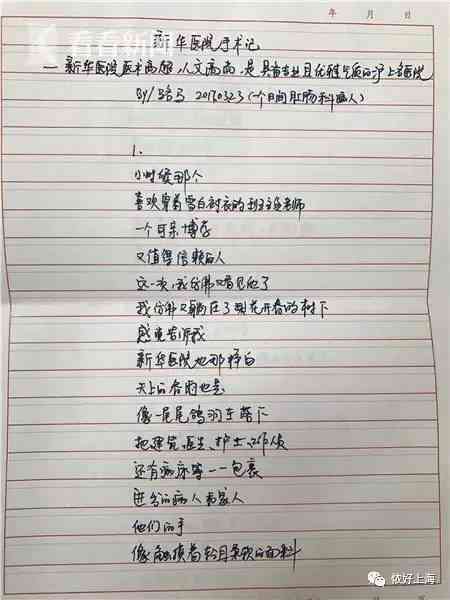 年 月 日
看看新闻
新华医院手术记
— 新华医院医术高超，人文高尚，是具有专业且优雅气质的沪上名医院
BY/ 马 20170323 (一个日间肛肠科病人)
1.
小时候那个
喜欢穿着雪白衬衣的班主任老师
一个可亲博学
又值得信赖的人
这一次，我仿佛又看见他了
我仿佛又躺在了梨花开春的树下
感觉告诉我
新华医院也那样白
天上的春雨也是
像一尾尾鸽羽在落下
把建筑、医生、护士、工作人员
还有病床等一一包裹
进出的病人和家人
他们的手
像触摸着轻且柔软的面料
侬好上海